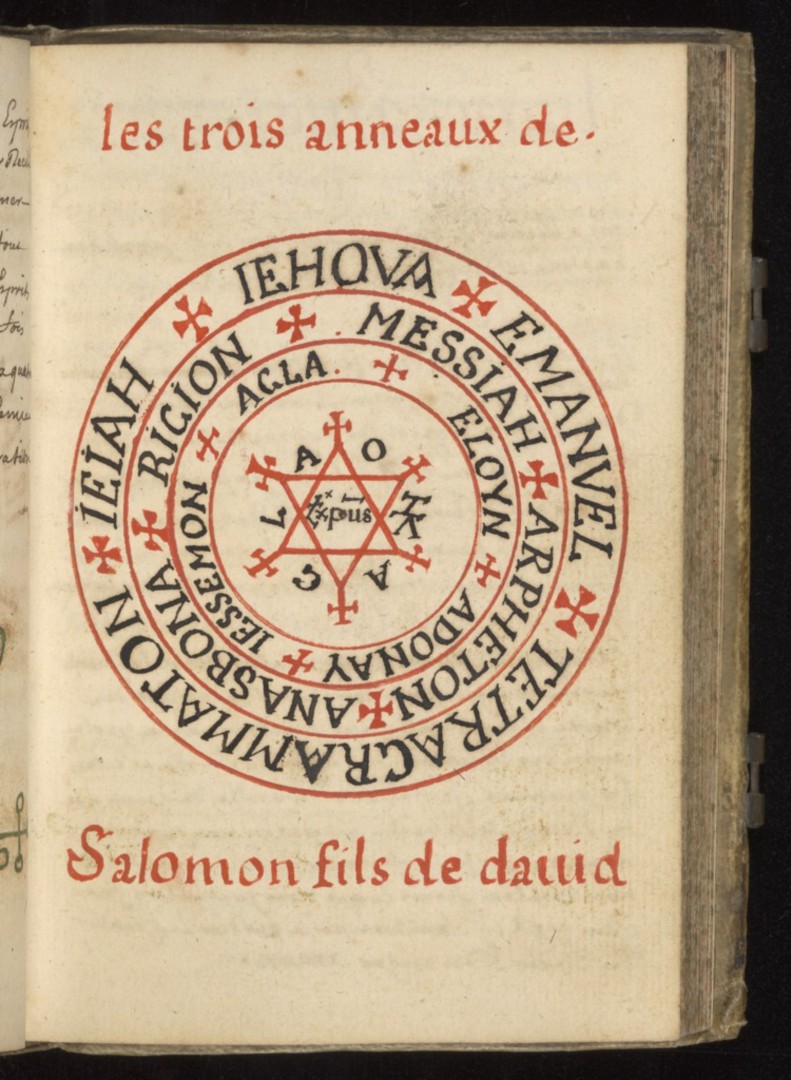 les trois anneaux de.
✠ IEHOVA ✠ EMANVEL ✠ TETRAGRAMMATON ✠ IEIAH
✠ MESSIAH ✠ ARPHETON ✠ ANASBONA ✠ RIGION
✠ ELOYN ✠ ADONAY ✠ IESSEMON ✠ AGLA.
A O
A G L A
xp̄us
Salomon fils de dauid